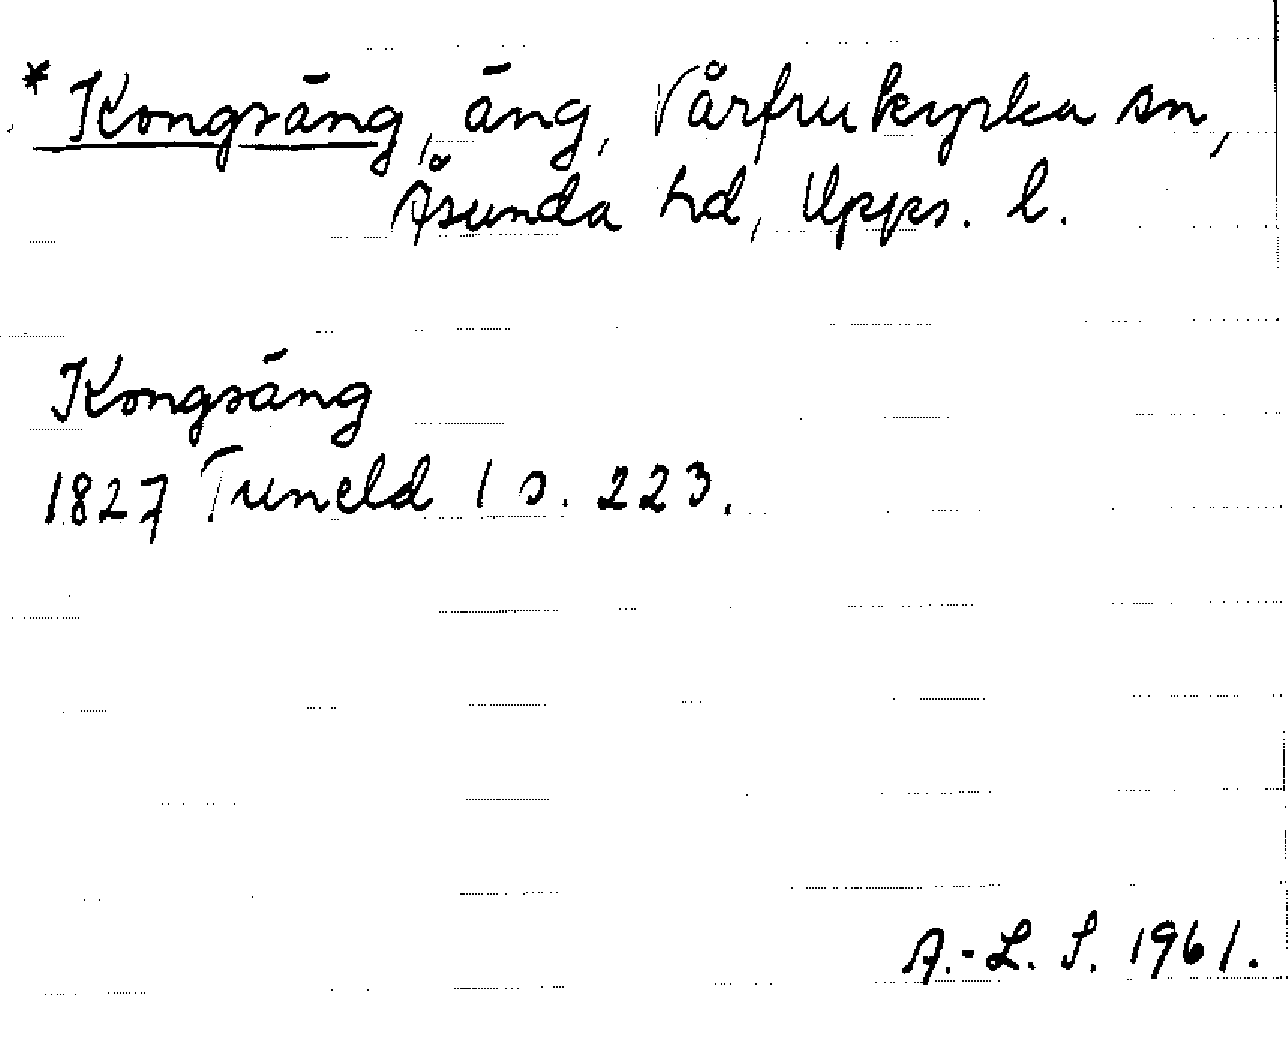 * Kongsäng, äng, Vårfrukyrka sn,
Åsunda hd, Upps. l.
Kongsäng
1827 Tuneld 1 s. 223.
A.-L. S. 1961.